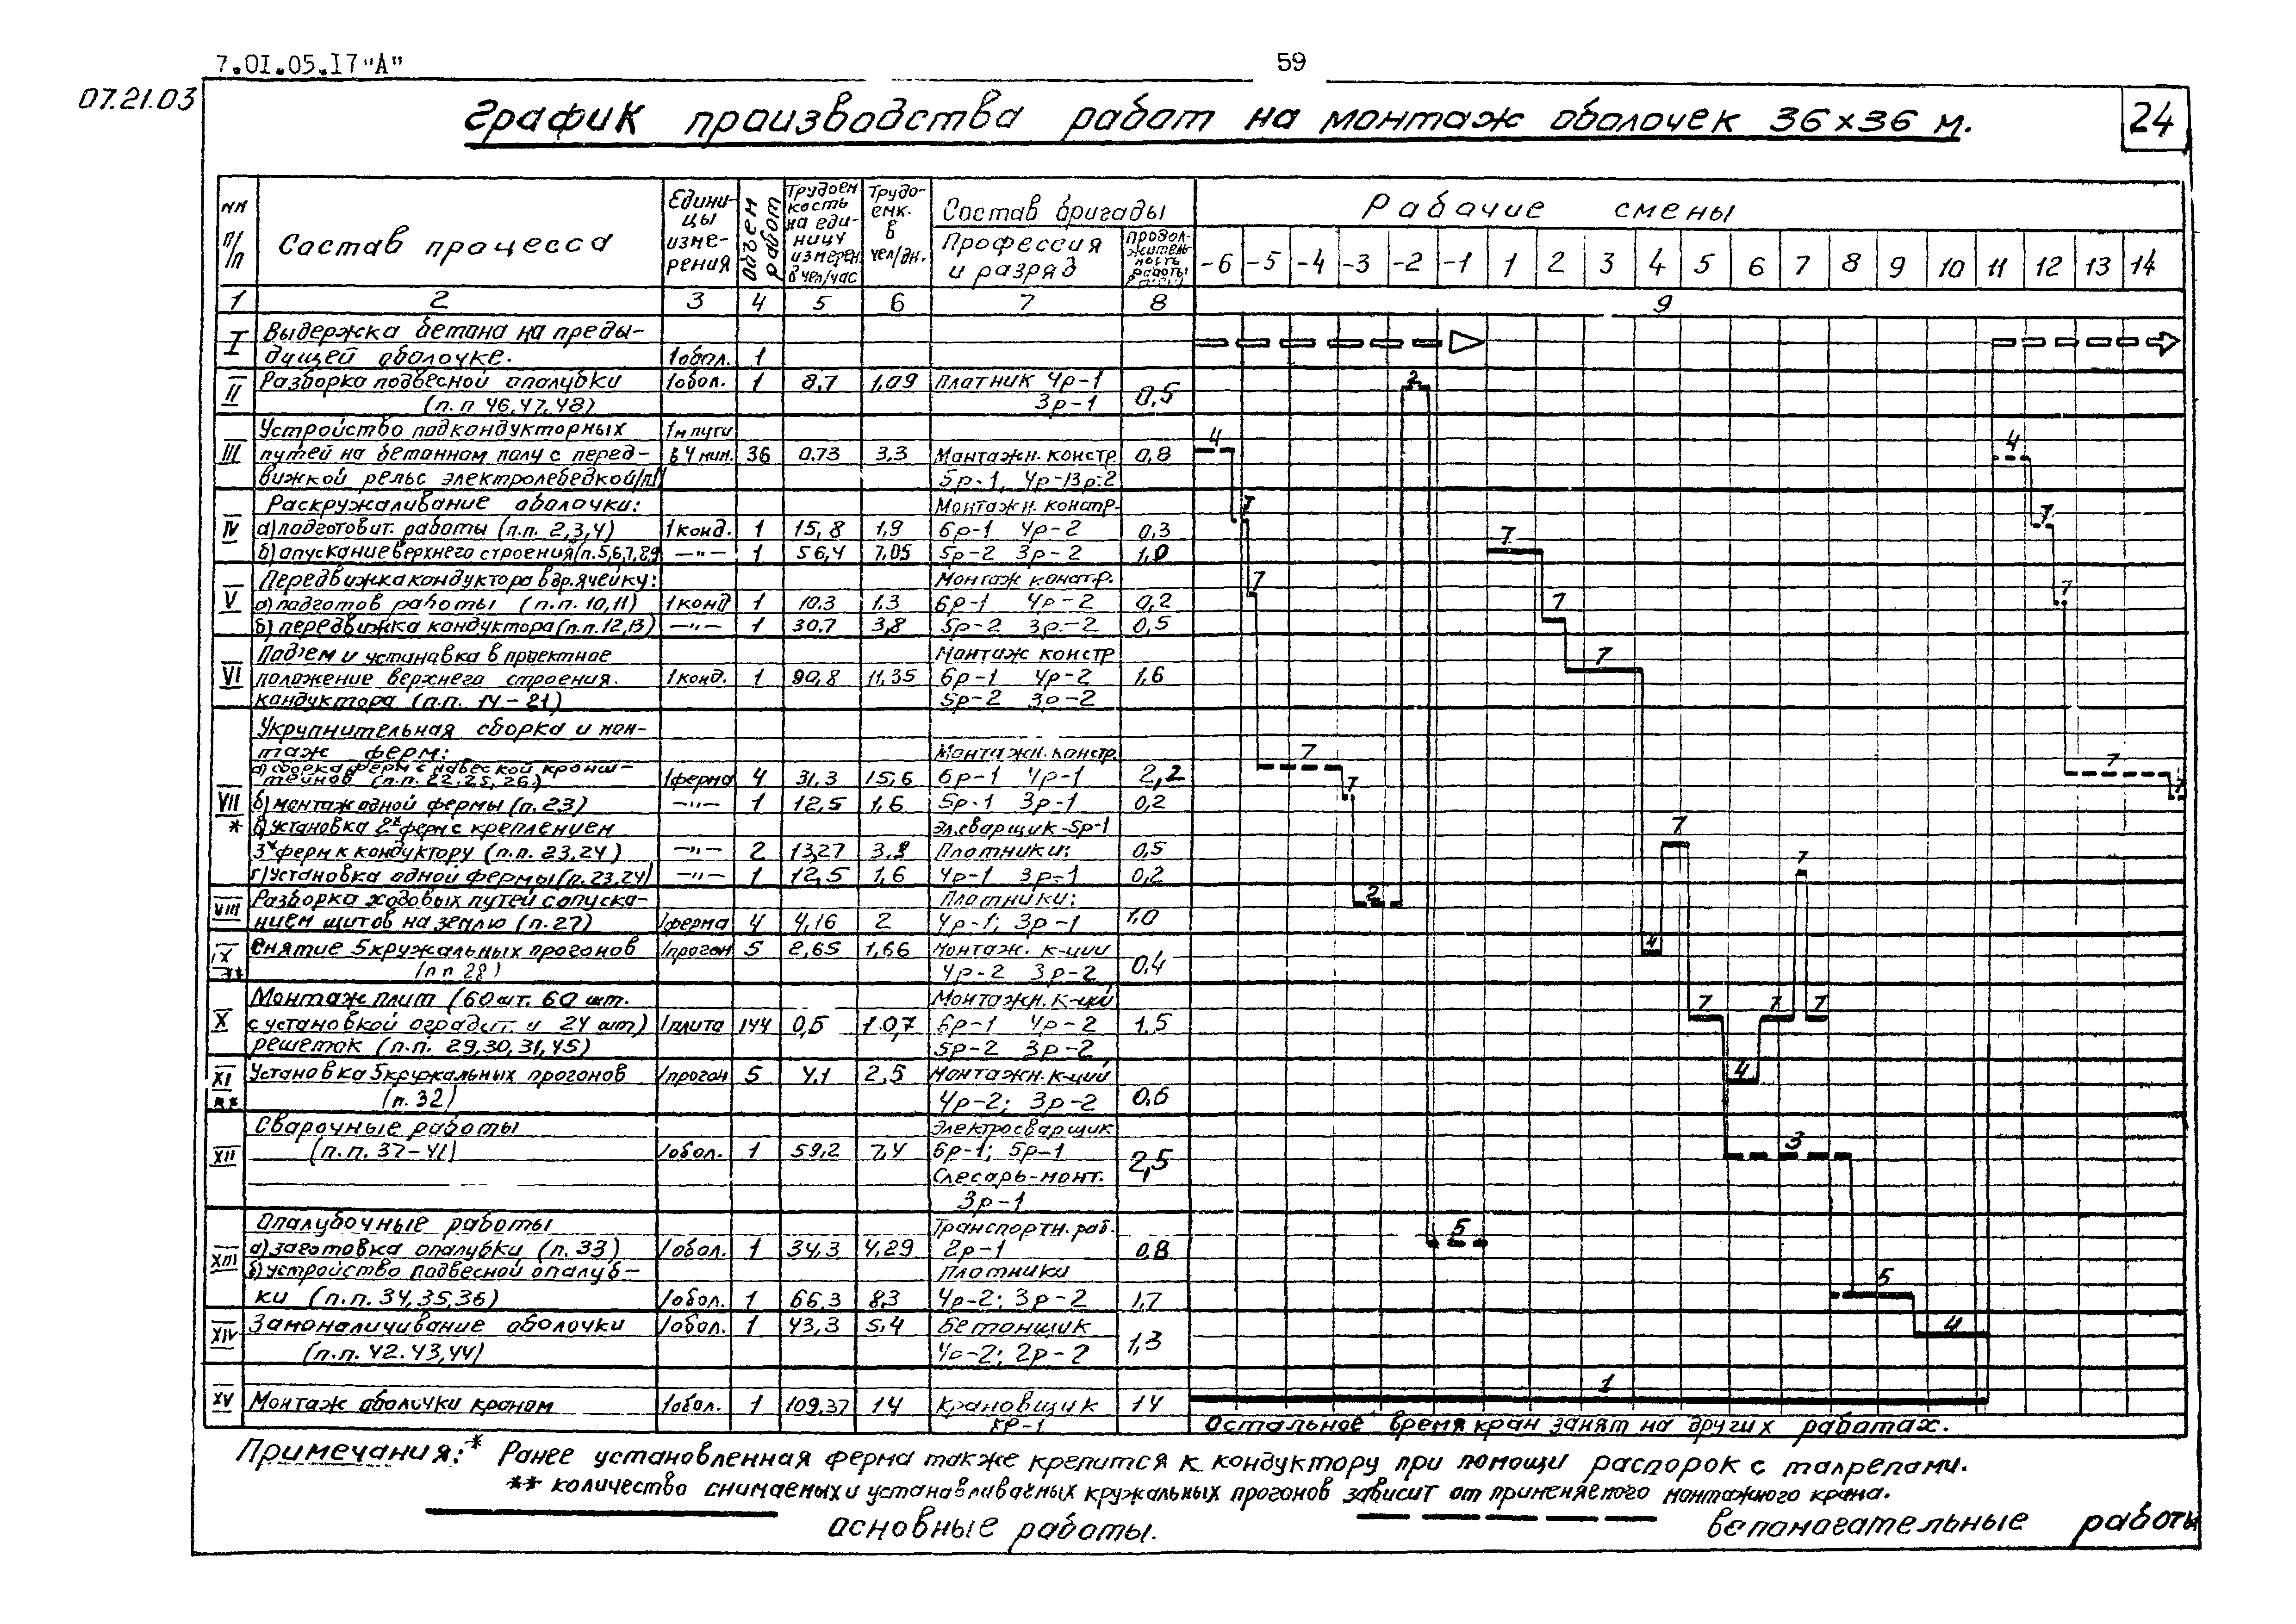 7.01.05.17"А"
59
07.21.03
График производства работ на монтаж оболочек 36×36 м.
24
№№ п/п
Состав процесса
Едини-
цы
изме-
рения
Объем работ
Трудоем
кость
на еди-
ницу
измерен.
в чел/час
Трудо-
емк.
в
чел/дн.
Состав бригады
Профессия
и разряд
Продол-
житель-
ность
работы
Рабочие смены
-6 -5 -4 -3 -2 -1 1 2 3 4 5 6 7 8 9 10 11 12 13 14
1 2 3 4 5 6 7 8 9
I Выдержка бетона на преды-
дущей оболочке. 1обол. 1
II Разборка подвесной опалубки 1обол. 1 8,7 1,09 Плотник 4р-1 0,5
(п.п 46,47,48) 3р-1
Устройство подкондукторных 1м пути
III путей на бетонном полу с перед- в 4 нит. 36 0,73 3,3 Монтажн. констр. 0,8
вижкой рельс электролебедкой 5р-1, 4р-1 3р-2
Раскружаливание оболочки: Монтажн. констр.
IV а) подготовит. работы (п.п. 2,3,4) 1конд. 1 15,8 1,9 6р-1 4р-2 0,3
б) опускание верхнего строения (п.5,6,7,8,9 —"— 1 56,4 7,05 5р-2 3р-2 1,0
Передвижка кондуктора в др. ячейку: Монтаж констр.
V а) подготов работы (п.п. 10,11) 1конд 1 10.3 1.3 6р-1 4р-2 0,2
б) передвижка кондуктора (п.п. 12,13) —"— 1 30.7 3,8 5р-2 3р-2 0,5
Подъем и установка в проектное Монтаж констр
VI положение верхнего строения. 1конд. 1 90,8 11,35 6р-1 4р-2 1,6
кондуктора (п.п. 14-21) 5р-2 3р-2
Укрупнительная сборка и мон-
таж ферм: Монтажн. констр.
а) сборка ферм с навеской кронш-
тейнов (п.п. 22.25,26) 1ферма 4 31,3 15,6 6р-1 4р-1 2,2
VII б) монтаж одной фермы (п.23) —"— 1 12,5 1,6 5р-1 3р-1 0,2
* в) установка 2х ферм с креплением Эл.сварщик-5р-1
3х ферм к кондуктору (п.п. 23,24) —"— 2 13,27 Плотники: 0,5
г) установка одной фермы (п. 23,24) —"— 1 12,5 1,6 4р-1 3р-1 0,2
Разборка ходовых путей с опуска- Плотники:
VIII нием щитов на землю (п.27) 1ферма 4 4,16 2 4р-1; 3р-1 1,0
IX Снятие 5 кружальных прогонов 1прогон 5 2,65 1,66 Монтаж. к-ции
** (п.п 28) 4р-2 3р-2 0,4
Монтаж плит (60 шт. 60 шт. Монтажн. к-ций
X с установкой оградит. и 24 шт) 1плита 144 0,5 1.0,7 6р-1 4р-2 1,5
решеток (п.п. 29,30,31,45) 5р-2 3р-2
XI Установка 5 кружальных прогонов 1прогон 5 4.1 2,5 Монтажн. к-ций
** (п. 32) 4р-2; 3р-2 0,6
Сварочные работы Электросварщик
XII (п.п. 37-41) 1обол. 1 59,2 7,4 6р-1; 5р-1 2,5
Слесарь-монт.
3р-1
Опалубочные работы Транспортн. раб.
а) заготовка опалубки (п. 33) 1обол. 1 34,3 4,29 2р-1 0,8
XIII б) устройство подвесной опалуб- Плотники
ки (п.п. 34,35,36) 1обол. 1 66,3 83 4р-2; 3р-2 1,7
XIV Замоналичивание оболочки 1обол. 1 43,3 5.4 Бетонщик
(п.п. 42.43,44) 4р-2; 2р-2 1,3
XV Монтаж оболочки краном 1обол. 1 109,37 14 Крановщик 14
кр-1
2
4 4
7 7
7
7 7
7
7 7
7 7
7
7
2
4
7 7 7
4
3
5
5
4
1
Остальное время кран занят на других работах.
Примечания: * Ранее установленная ферма также крепится к кондуктору при помощи распорок с талрепами.
** количество снимаемых и устанавливаемых кружальных прогонов зависит от применяемого монтажного крана.
основные работы. вспомогательные работы